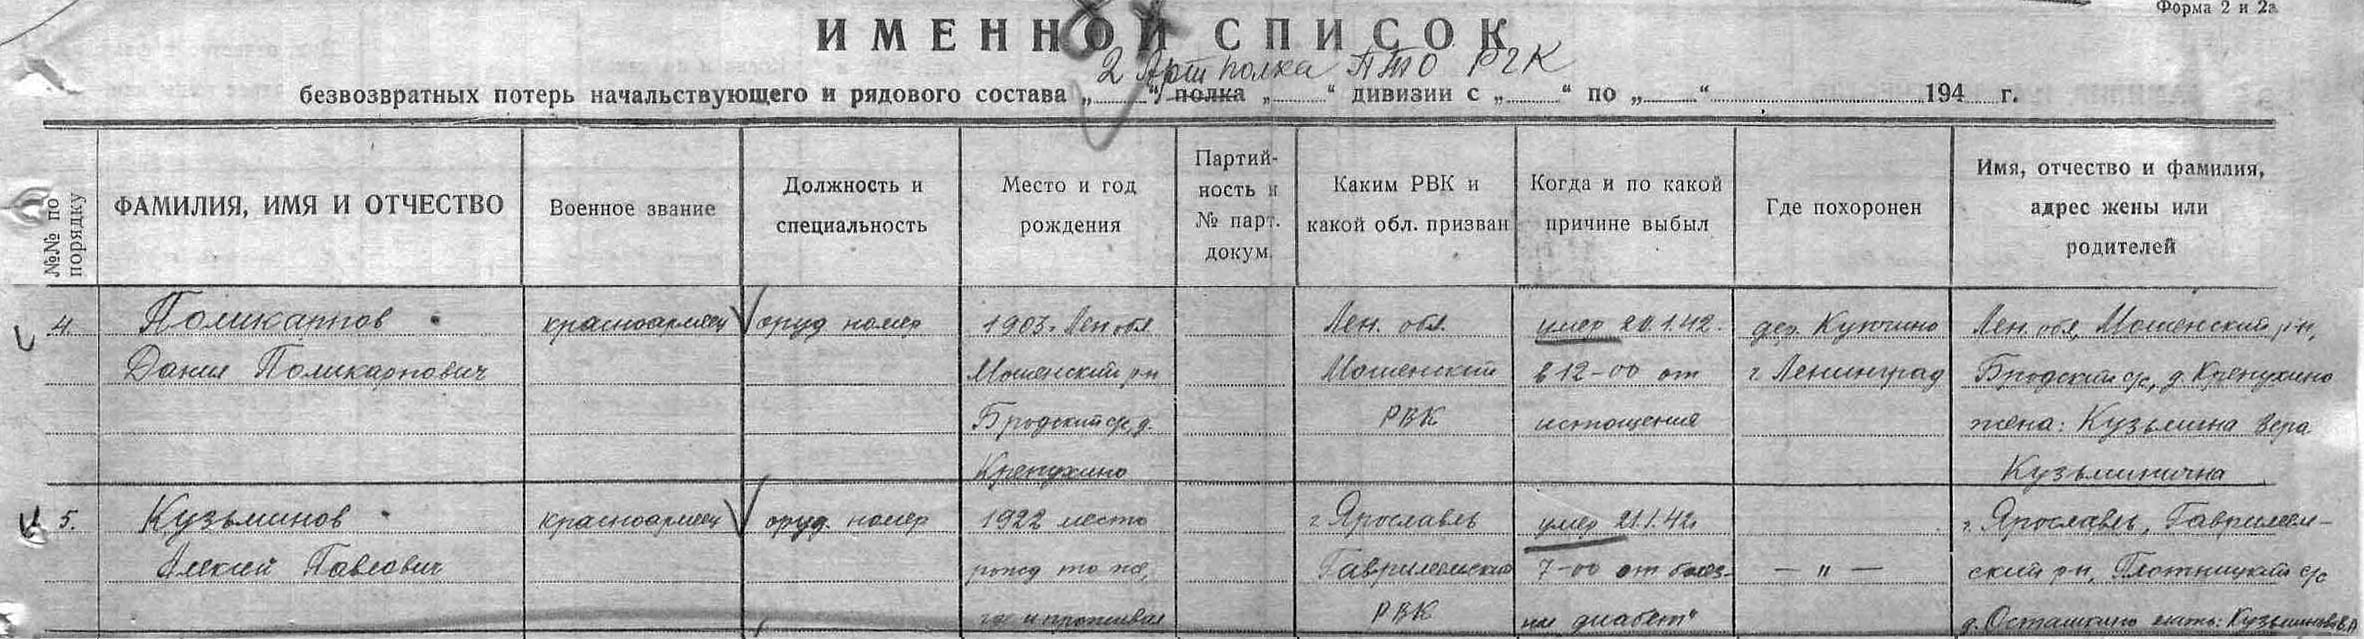 Форма 2 и 2а
ИМЕННОЙ СПИСОК
2 Арт полка ПТО РГК
безвозвратных потерь начальствующего и рядового состава „ “ полка „ “ дивизии с „ “ по „ “ 194 г.
№№ по порядку
ФАМИЛИЯ, ИМЯ И ОТЧЕСТВО
Военное звание
Должность и
специальность
Место и год
рождения
Партий-
ность и
№ парт.
докум.
Каким РВК и
какой обл. призван
Когда и по какой
причине выбыл
Где похоронен
Имя, отчество и фамилия,
адрес жены или
родителей
4. Поликарпов красноармеец оруд номер 1903. Лен обл Лен. обл. умер 20.1.42. дер. Лен. обл, Мошенский р-н,
Данил Поликарпович Мошенский рн Мошенский в 12-00 от г. Ленинград Бродский с/с, д. Крепухино
Бродский с/с, д. РВК истощения жена: Кузьмина Вера
Крепухино Кузьминична
5. Кузьминов красноармеец оруд. номер 1922 место г Ярославль умер 21.1.42г г. Ярославль, Гаврилем-
Алексей Павлович рожд то же, Гаврилемский 7-00 от болез- — „ — ский р-н, Плотницкий с/с
где и проживал РВК ни диабет" д. Осташкино мать: Кузьминова